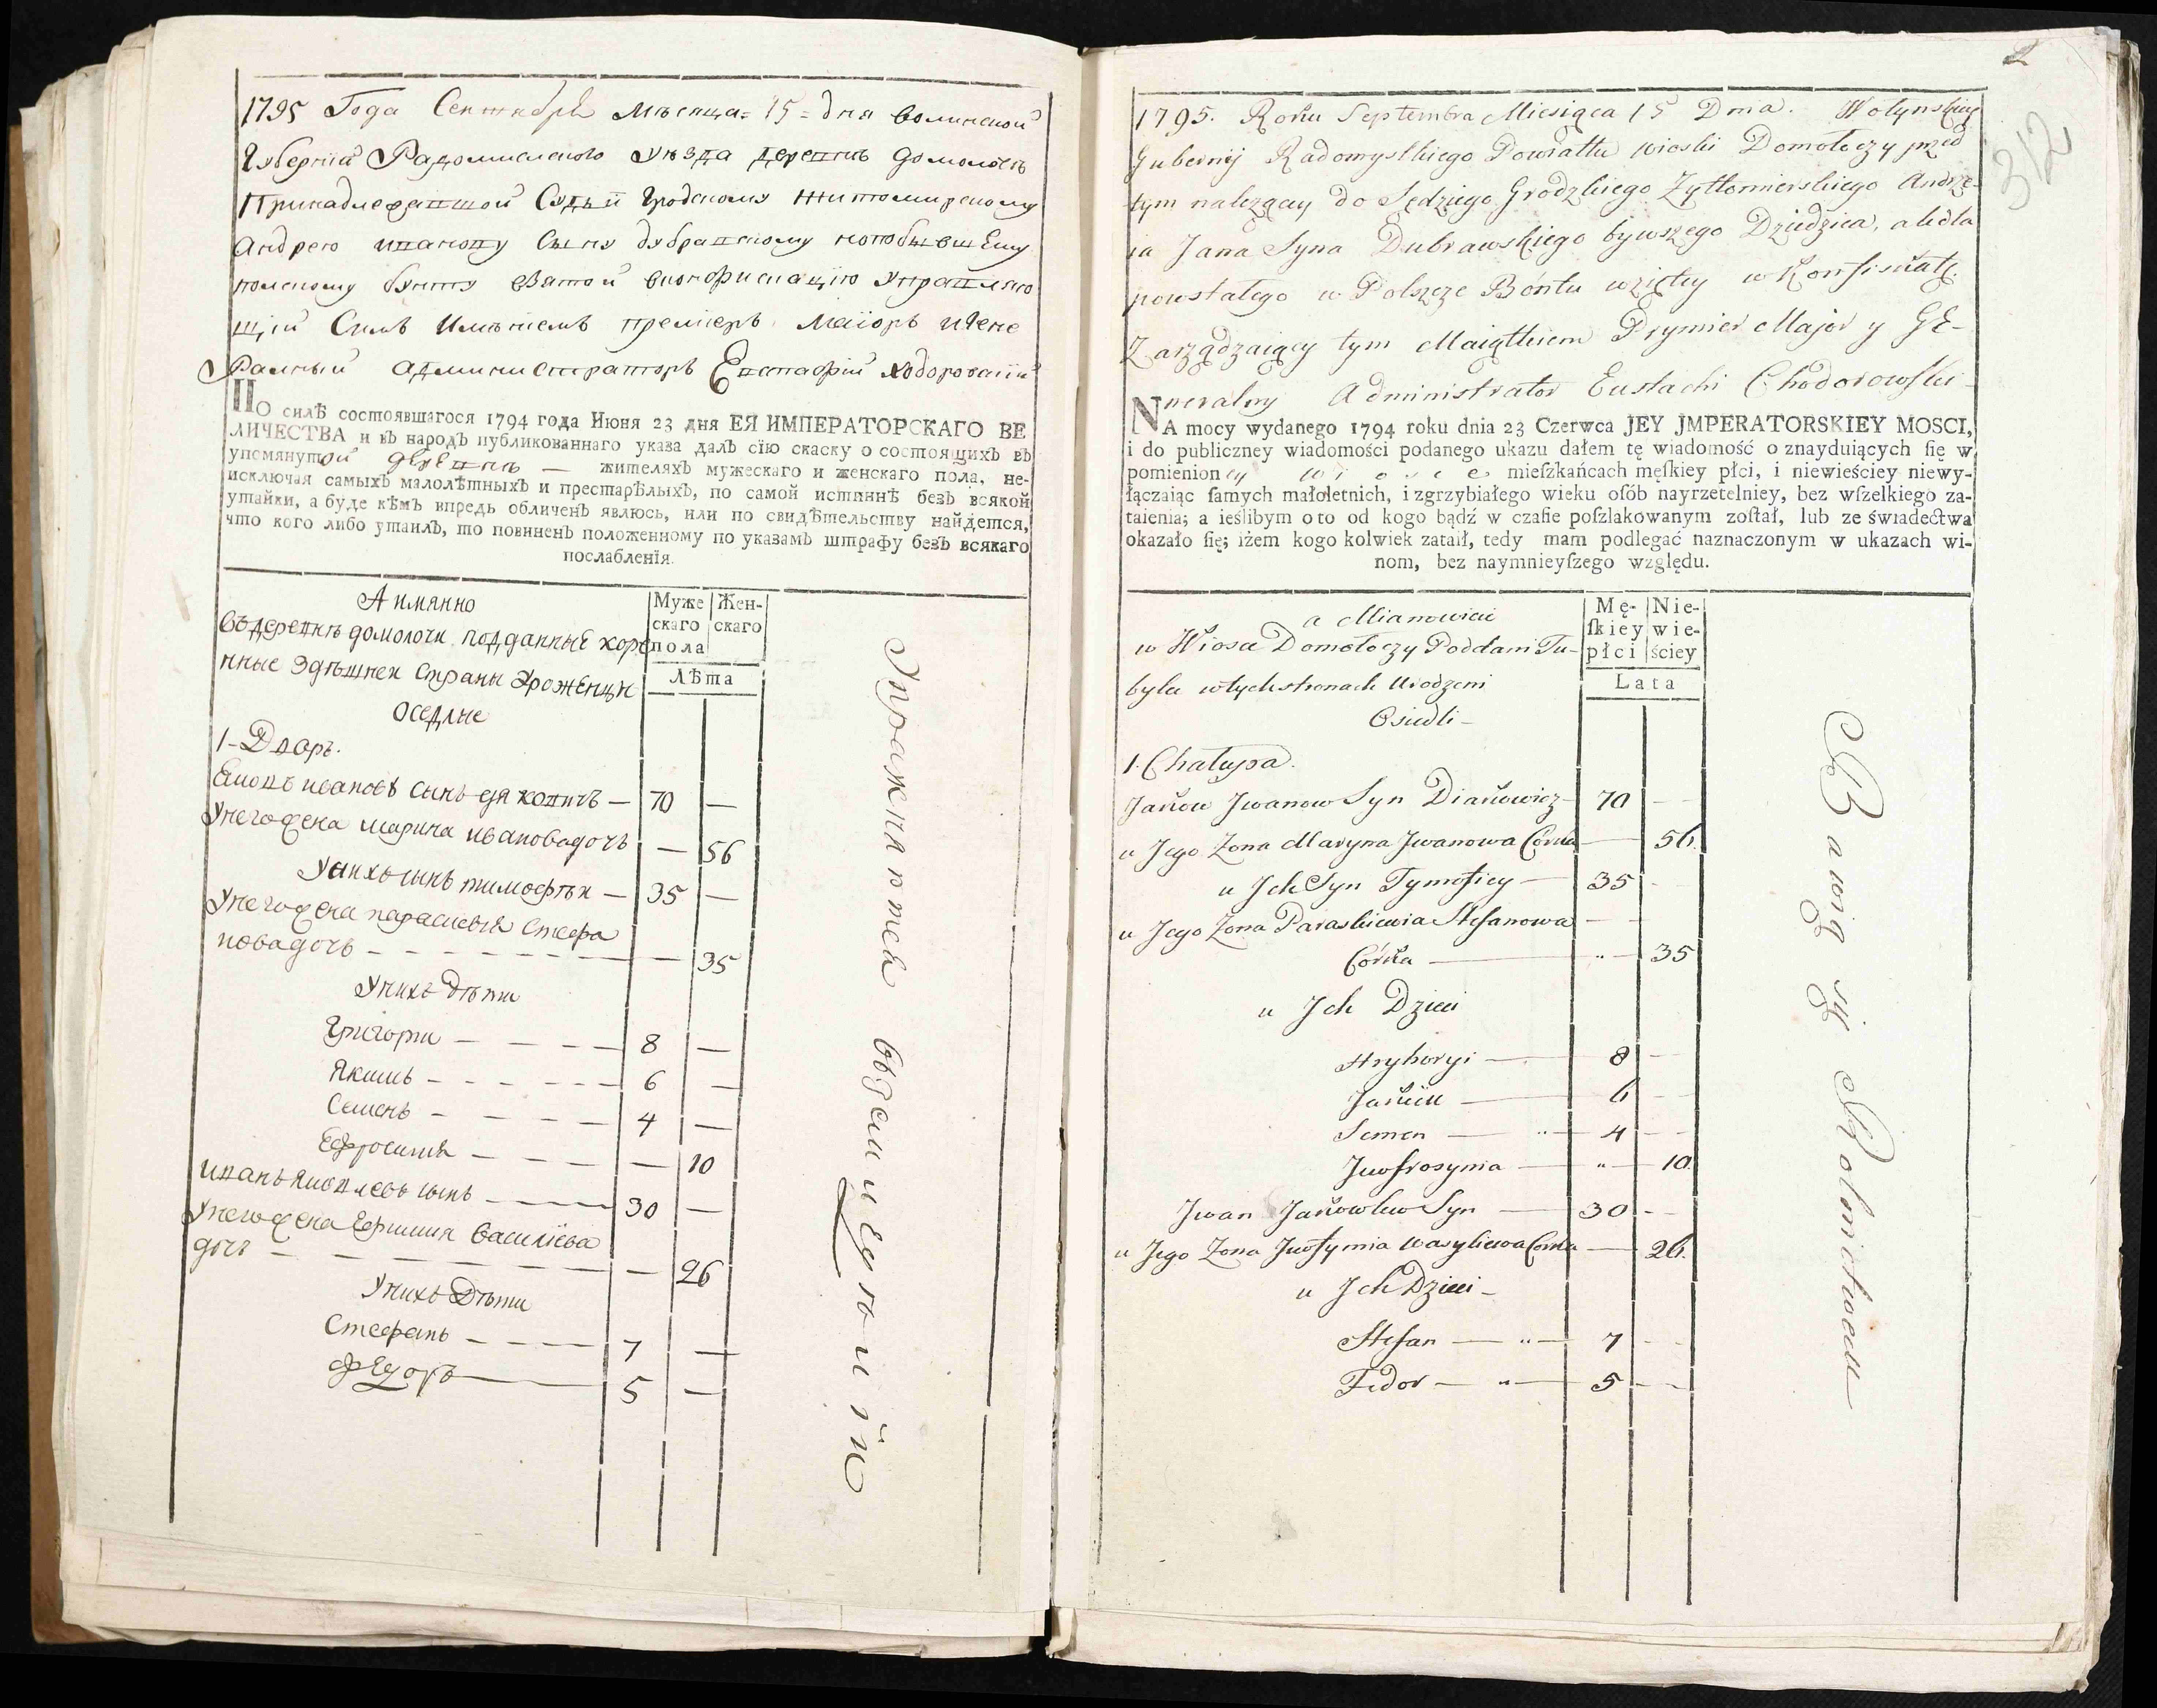 1795 Года Сентября Мѣсяца = 15 = дня волинской
Губерніи Радомислского уѣзда деревнѣ домолочѣ
Принадлежавшой Судьи Гродскому Житомирскому
Андрею иванову Сыну дубравскому
полскому бунту взятой вконфискацію управляю
щій Симъ Имѣніемъ премиеръ маіоръ игене
Ралный администраторъ Евстафій ходоровскій
ПО силѣ состоявшагося 1794 года Июня 23 дня ЕЯ ИМПЕРАТОРСКАГО ВЕ
ЛИЧЕСТВА и въ народъ публикованнаго указа далъ сїю скаску о состоящихъ въ
упомянутой деревнѣ — жителяхъ мужескаго и женскаго пола, не-
исключая самыхъ малолѣтныхъ и престарѣлыхъ, по самой истиннѣ безъ всякой
утайки, а буде кѣмъ впредь обличенъ явлюсь, или по свидѣтельству найдется,
что кого либо утаилъ, то повиненъ положенному по указамъ штрафу безъ всякаго
послабленїя.
А имянно
Муже скаго пола
Жен- скаго
въ деревнѣ домолочи подданные коре
нные здѣшнеи страны Уроженцы
Лѣта
оседлые
1 - Дворъ.
Яковъ ивановъ сынъ дяковичъ — 70 —
Унего жена марина ивановадочь — 56
Унихъ сынъ тимофѣи — 35 —
Унего жена парасковия Стефа
новадочь — — 35
Унихъ дѣти
Григори — 8 —
Якимъ — 6 —
Семенъ — 4 —
Ефросиния — — 10
иванъ яковлевъ сынъ — 30 —
Унего жена Ефимия василіева
дочь — — 26
Унихъ Дѣти
Стефанъ — 7 —
федоръ — 5 —
Упражняются
2
312
1795. Roku Septembra Miesiąca 15 Dnia. Wołynskiey
Gubernij Radomyslkiego Powiattu wioski Domołoczy przed
tym nalezącey do Sędziego Grodzkiego Zyttomierskiego Andrze-
ia Jana Syna Dubrawskiego bywszego Dziedzica, a le dla
powstałego w Polszcze Bóntu wziętey w Konfiskatę.
Zarządzaiący tym Maiątkiem Prymier Major y GE-
neralny Administrator Eustachi Chodorowski -
NA mocy wydanego 1794 roku dnia 23 Czerwca JEY JMPERATORSKIEY MOSCI,
i do publiczney wiadomości podanego ukazu dałem tę wiadomość o znayduiących ſię w
pomienioney wiosce mieſzkańcach męſkiey płci, i niewieściey niewy-
łączaiąc ſamych małoletnich, i zgrzybiałego wieku oſób nayrzetelniey, bez wſzelkiego za-
taienia; a ieślibym o to od kogo bądź w czaſie poſzlakowanym zoſtał, lub ze świadectwa
okazało ſię; iżem kogo kolwiek zataił, tedy mam podlegać naznaczonym w ukazach wi-
nom, bez naymnieyſzego względu.
a Mianowicie
Mę- ſkiey płci
Nie- wie- ściey
w Wiosce Domołoczy Poddani Tu-
bylce w tych stronach Urodzeni
Lata
Osiedli -
1. Chałupa.
Jakow Jwanow Syn Diakowicz — 70 —
u Jego Zona Maryna Jwanowa Corka — 56.
u Jch Syn Tymofiey — 35 -
u Jego Zona Paraskiewia Stefanowa — -
Córka — " — 35
u Jch Dzieci
Hryhoryi — 8 —
Jakim — 6 —
Semen — " — 4 —
Jewfrosynia — " — 10.
Jwan Jakowlew Syn — 30 - -
u Jego Zona Jewfymia Wasyliewa Corka — 26.
u Jch Dzieci -
Stefan — " — 7 - -
Fedor — " — 5 - -
Bawią się Rolnictwem